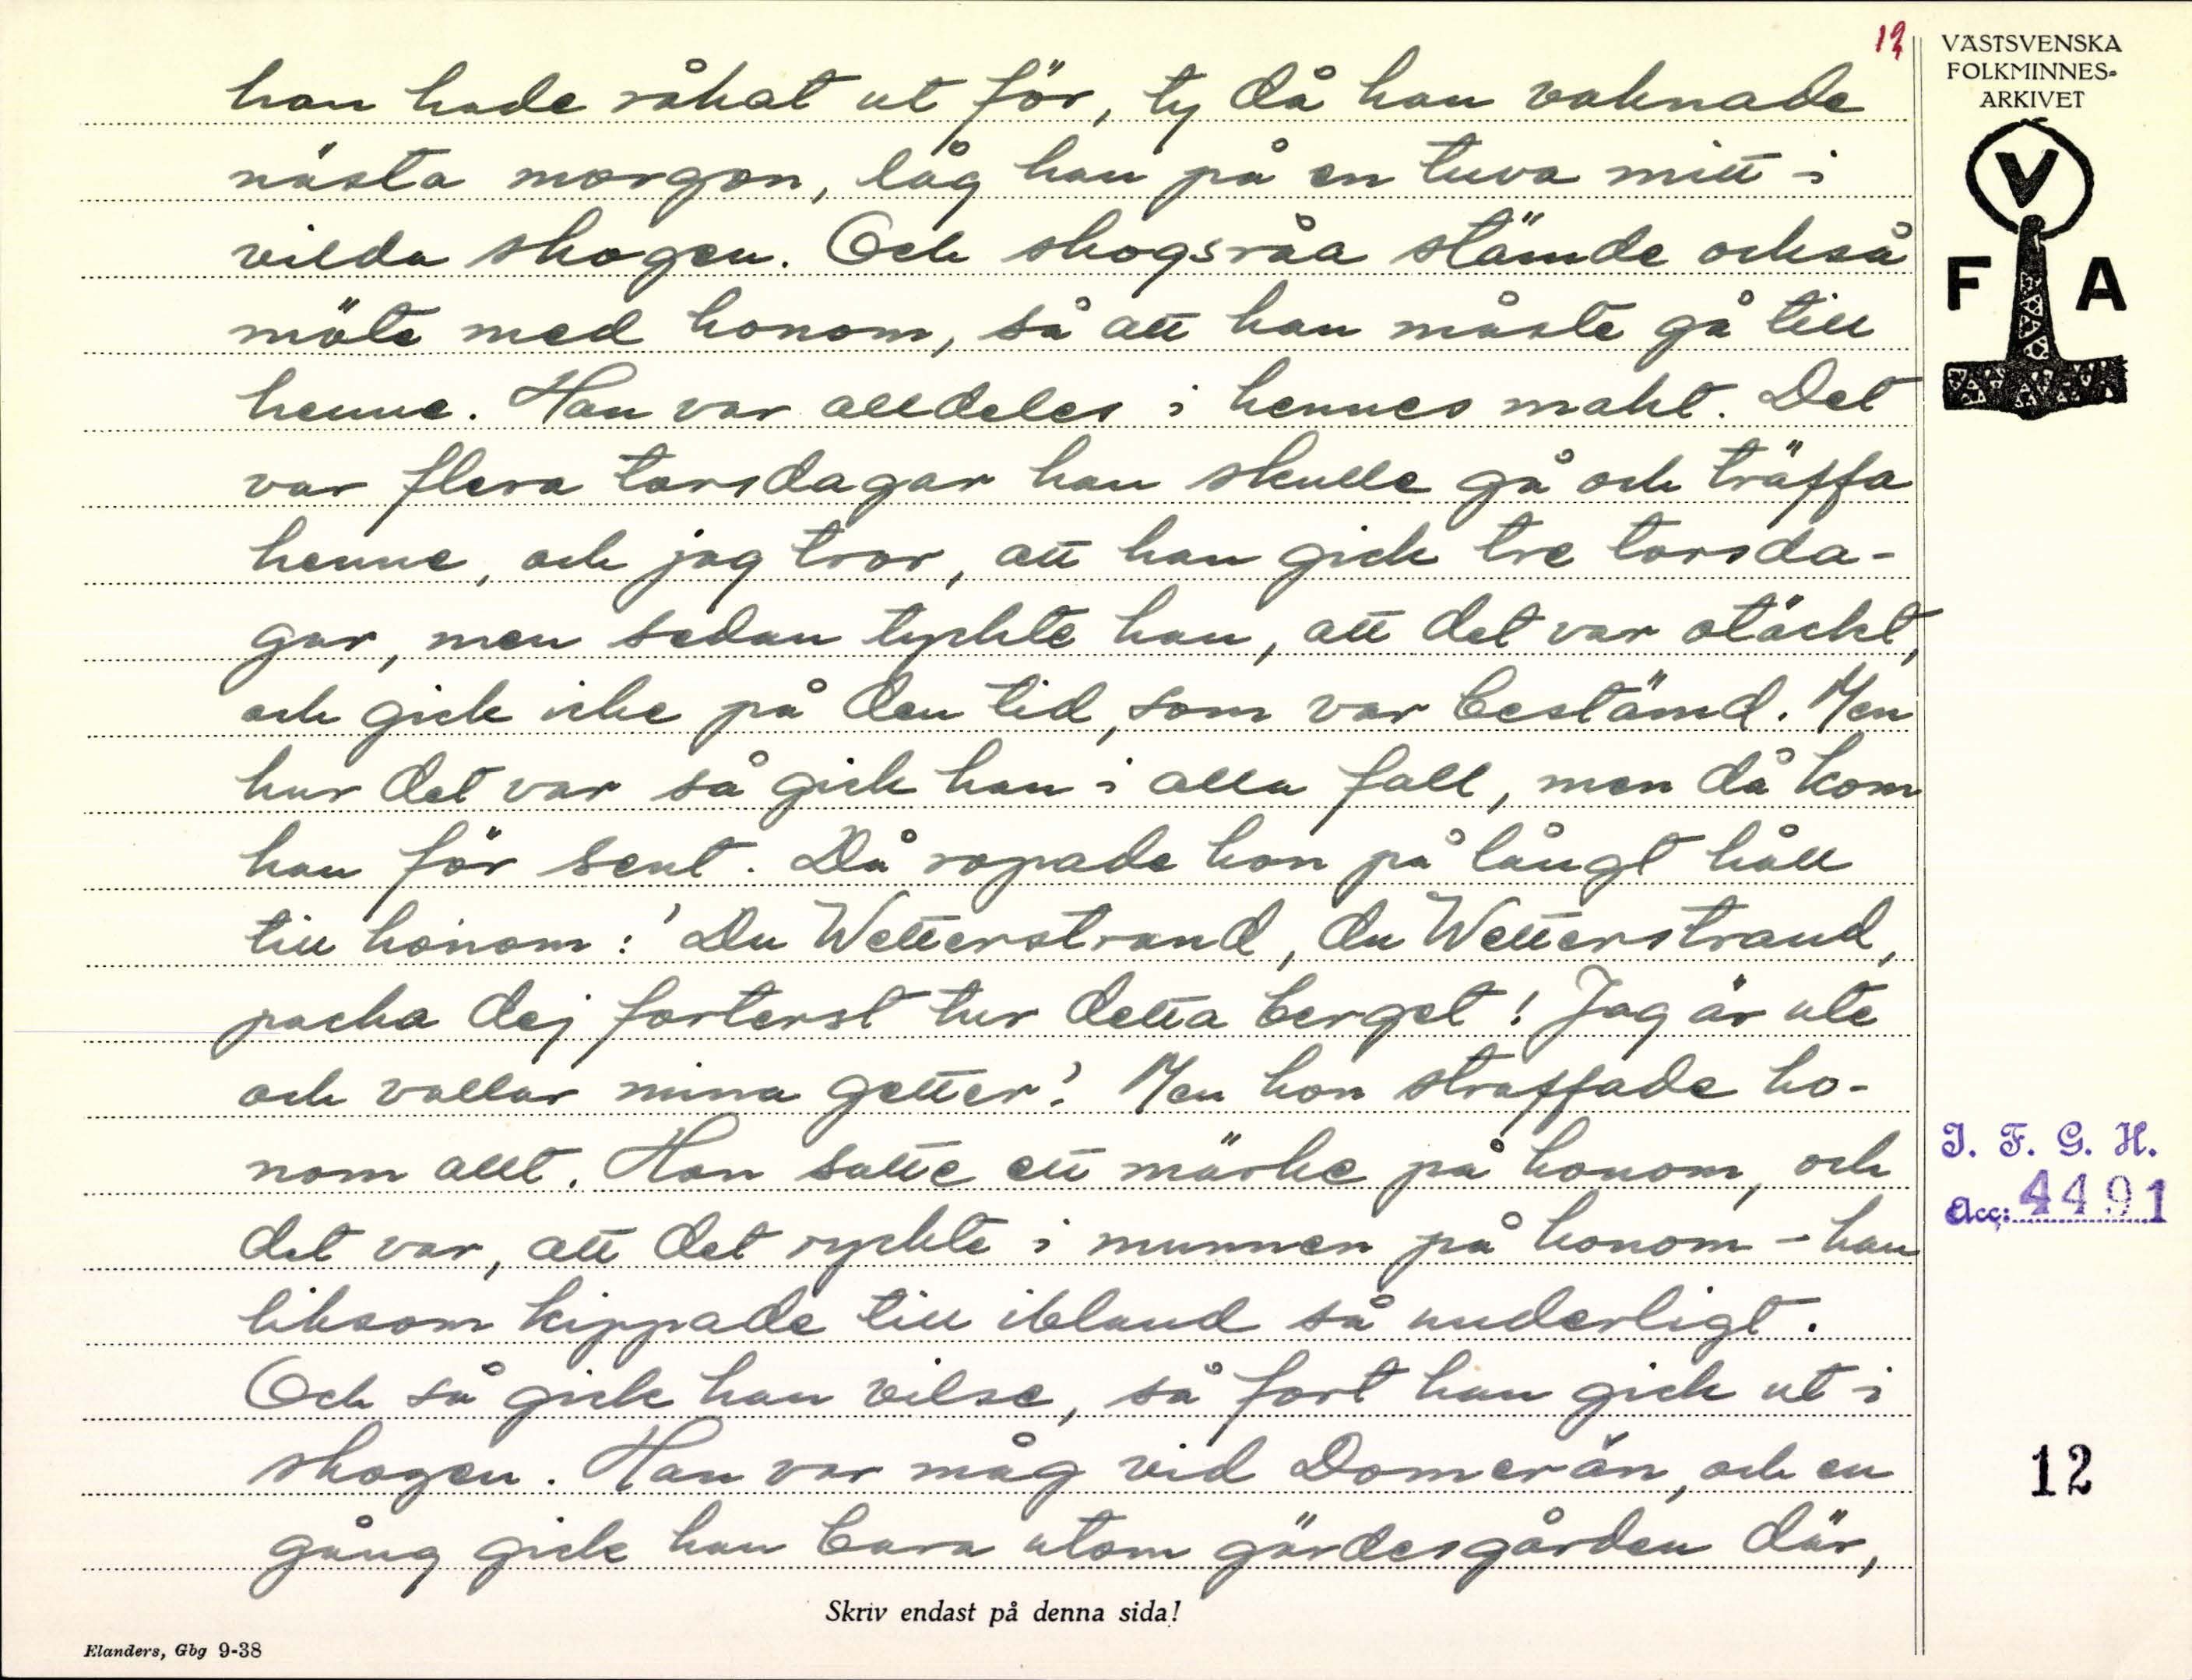 12
han hade råkat ut för, ty då han vaknade
nästa morgon, låg han på en tuva mitt i
vilda skogen. Och skogsråa stämde också
möte med honom, så att han måste gå till
henne. Han var alldeles i hennes makt. Det
var flera torsdagar han skulle gå och träffa
henne, och jag tror, att han gick tre torsda-
gar, men sedan tyckte han, att det var otäckt,
och gick icke på den tid, som var bestämd. Men
hur det var så gick han i alla fall, men då kom
han för sent. Då ropade hon på långt håll
till honom: 'Du Wetterstrand, du Wetterstrand,
packa dej forterst tur detta berget! Jag är ute
och vallar mina getter.' Men hon straffade ho-
nom allt. Hon satte ett märke på honom, och
det var, att det ryckte i munnen på honom - han
liksom kippade till ibland så underligt.
Och så gick han vilse, så fort han gick ut i
skogen. Han var måg vid Domerån, och en
gång gick han bara utom gärdesgården där,
Skriv endast på denna sida!
Elanders, Gbg 9-38
VÄSTSVENSKA
FOLKMINNES-
ARKIVET
V
F A
I. F. G. H.
Acc: 4491
12